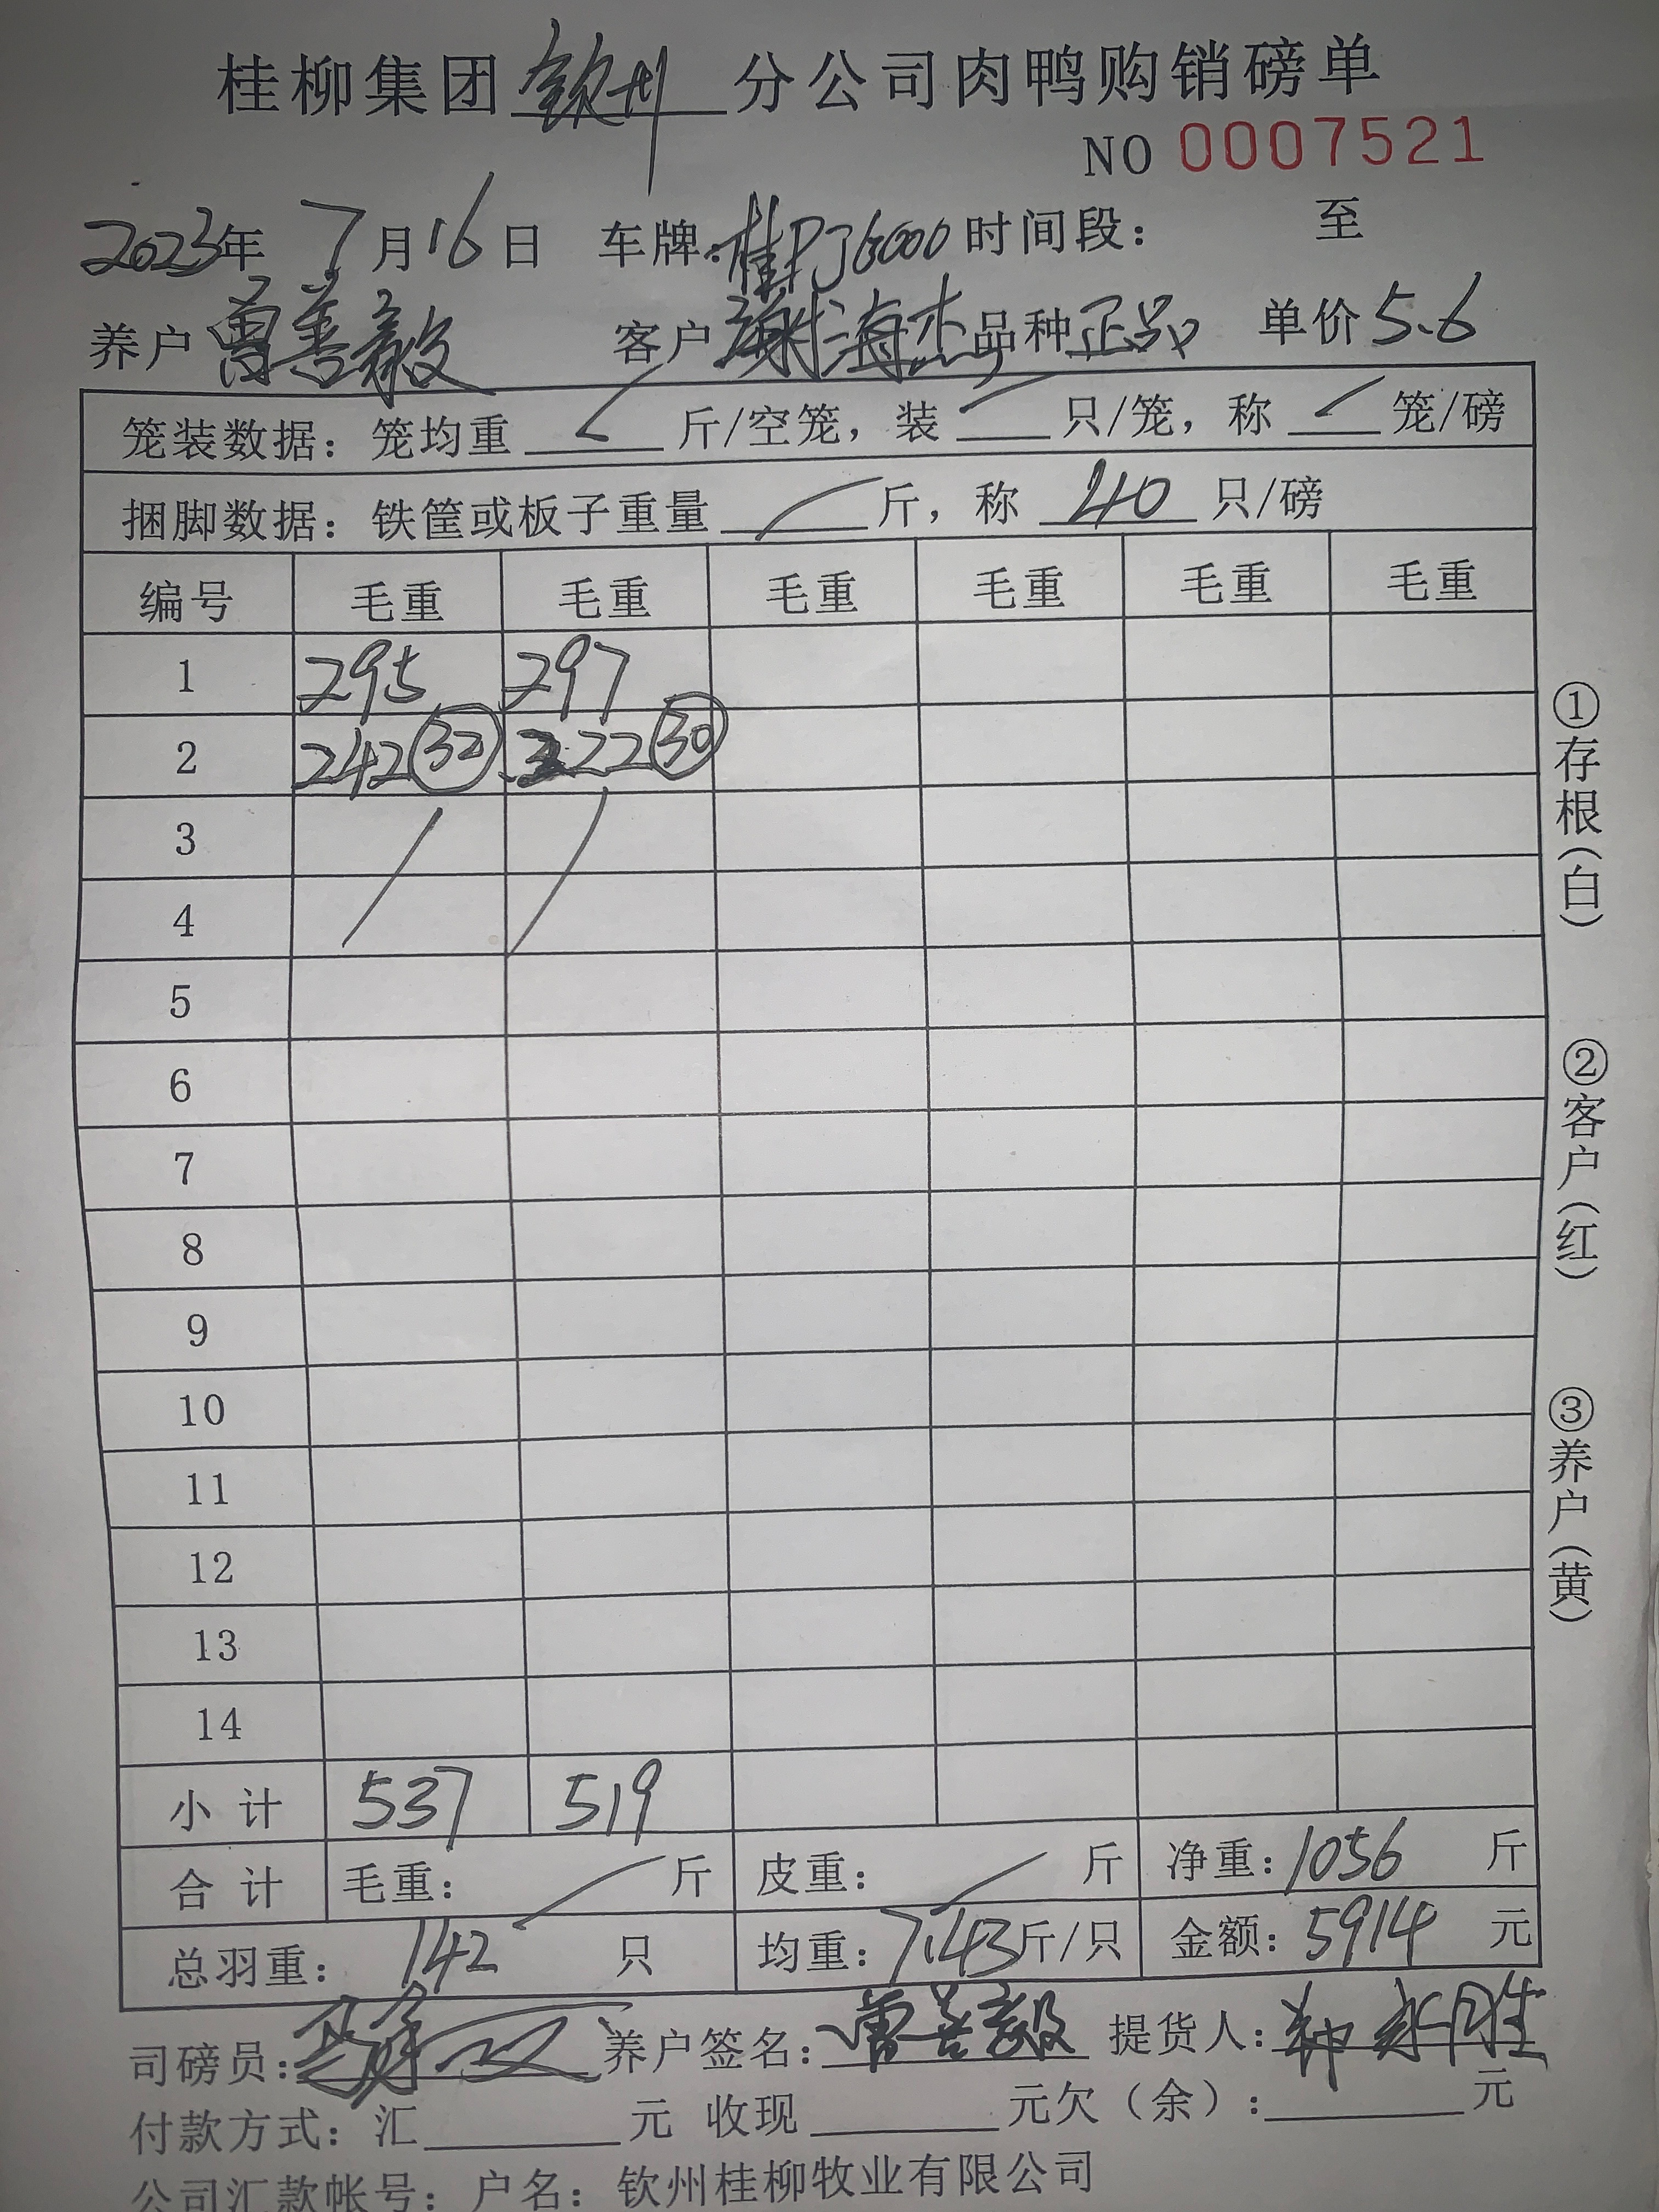 桂柳集团钦州分公司肉鸭购销磅单
NO 0007521
2023年 7月16日 车牌:桂 6000 时间段: 至
养户 曾善毅 客户 谢海杰 品种 正品 单价 5.6
笼装数据: 笼均重 斤/空笼, 装 只/笼, 称 笼/磅
捆脚数据: 铁筐或板子重量 斤, 称 40 只/磅
编号 毛重 毛重 毛重 毛重 毛重 毛重
1 295 297
2 242 (32) 222 (30)
3
4
5
6
7
8
9
10
11
12
13
14
小计 537 519
合计 毛重: 斤 皮重: 斤 净重: 1056 斤
总羽重: 142 只 均重: 7.43斤/只 金额: 5914 元
司磅员: 养户签名: 曾善毅 提货人:
付款方式: 汇 元 收现 元欠(余): 元
公司汇款帐号: 户名: 钦州桂柳牧业有限公司
①存根(白)
②客户(红)
③养户(黄)